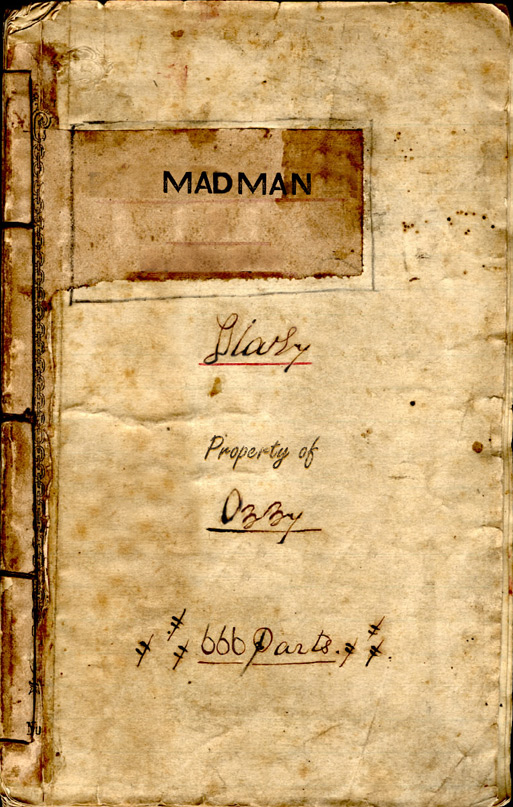 MADMAN
Diary
Property of
Ozzy
666 Parts.
No